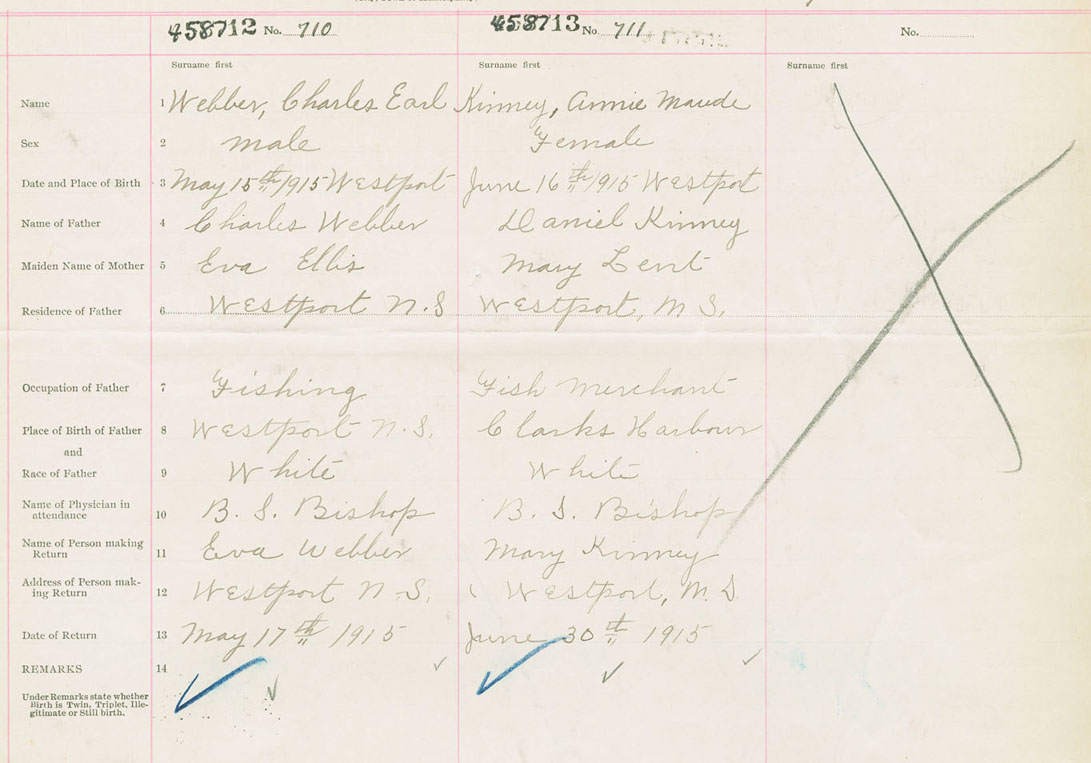 458712 No. 710 458713 No. 711 No.
Surname first Surname first Surname first
Name 1 Webber, Charles Earl Kinney, Annie Maude
Sex 2 male Female
Date and Place of Birth 3 May 15th 1915 Westport June 16th 1915 Westport
Name of Father 4 Charles Webber Daniel Kinney
Maiden Name of Mother 5 Eva Ellis Mary Lent
Residence of Father 6 Westport N.S Westport, N S.
Occupation of Father 7 Fishing Fish Merchant
Place of Birth of Father 8 Westport N.S. Clarks Harbour
and
Race of Father 9 White White
Name of Physician in
attendance 10 B. S. Bishop B. S. Bishop
Name of Person making
Return 11 Eva Webber Mary Kinney
Address of Person mak-
ing Return 12 Westport N.S. Westport, N.S.
Date of Return 13 May 17th 1915 June 30th 1915
REMARKS 14
Under Remarks state whether
Birth is Twin, Triplet, Ille-
gitimate or Still birth.